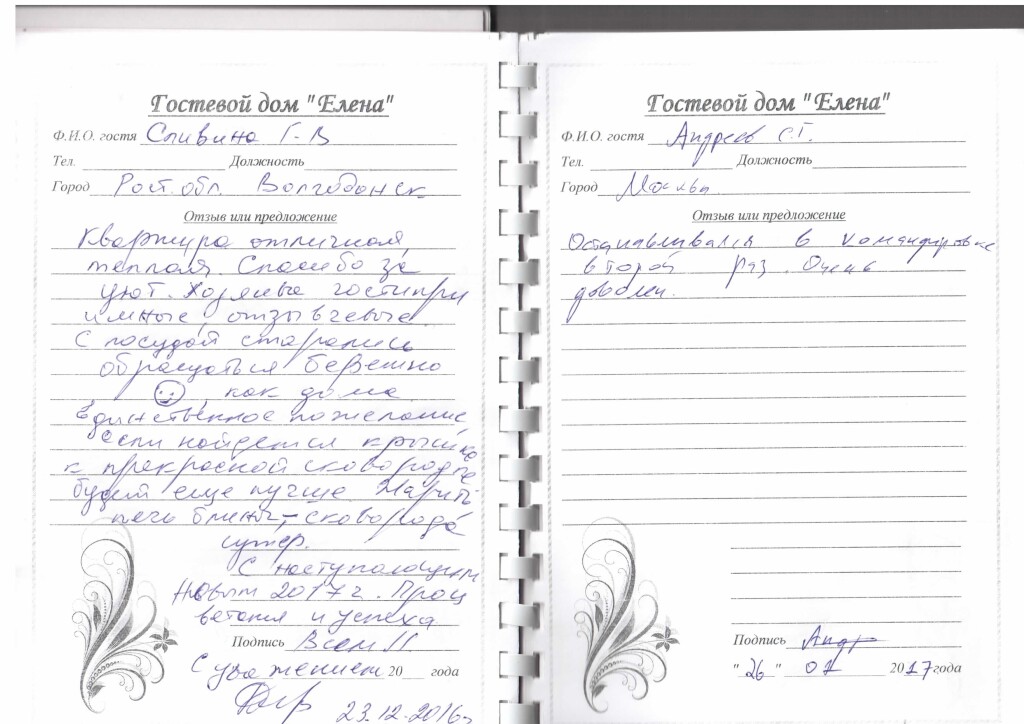 Гостевой дом "Елена"
Ф.И.О. гостя Сливина Г.В
Тел. Должность
Город Рост. обл. Волгодонск
Отзыв или предложение
Квартира отличная,
теплая. Спасибо за
уют. Хозяева гостепри
имные, отзывчевые.
С посудой старались
обращаться бережно
, как дома
единственное пожелание,
если найдется крышка
к прекрасной сковородке
будет еще лучше. Жарить
печь блины – сковорода
супер.
С наступающим
Новым 2017 г. Проц
ветания и успеха
Подпись Всем!!
С уважением 20 года
23.12.2016г
Гостевой дом "Елена"
Ф.И.О. гостя Андреев С.Г.
Тел. Должность
Город Москва
Отзыв или предложение
Останавливался в командировке
второй раз. Очень
доволен.
Подпись Андр
"26" 01 2017 года